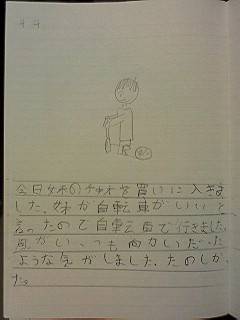 4 4
今日妹のチャオを買いに入きま
した。妹が自転車がいいと
言ったので自転車で行きました。
風がいつも向かいだった
ような気がしました。たのしか
た。